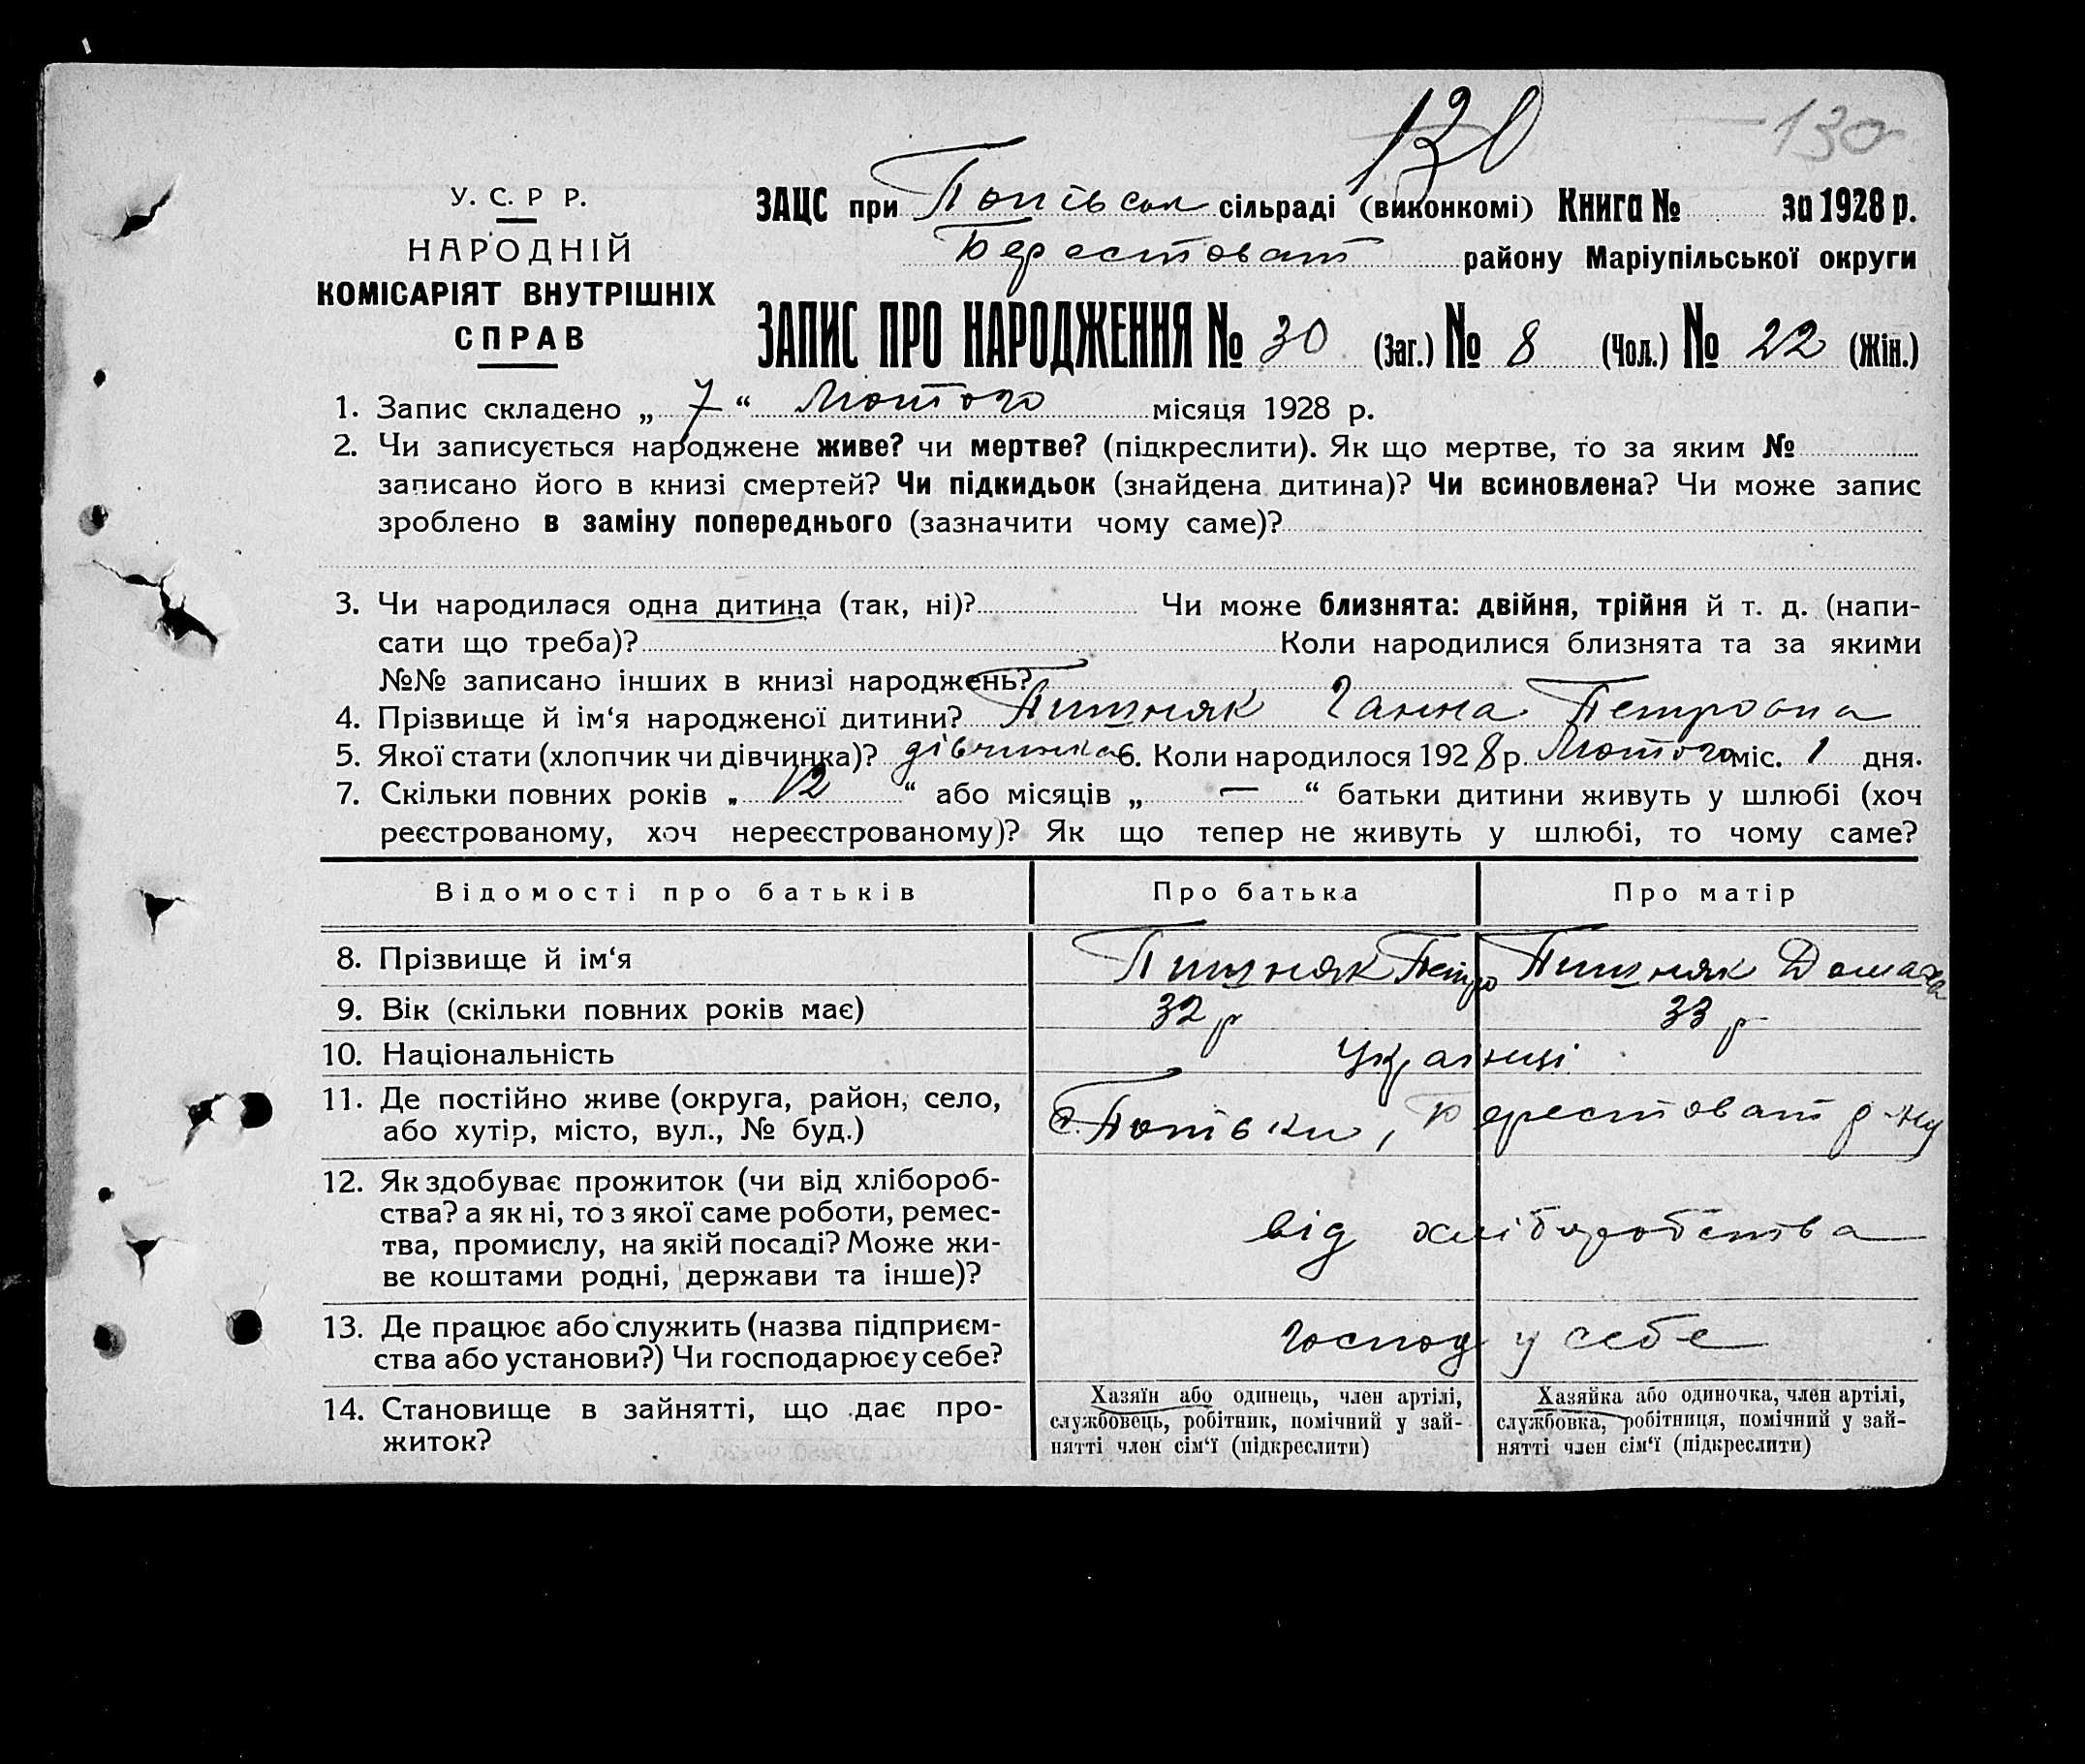 130
130
У. С. Р Р.
НАРОДНІЙ
КОМІСАРІЯТ ВНУТРІШНІХ
СПРАВ
ЗАЦС при Попівськ сільраді (виконкомі) Книга № за 1928 р.
Берестоват району Маріупільської округи
ЗАПИС ПРО НАРОДЖЕННЯ № 30 (Заг.) № 8 (Чол.) № 22 (Жін.)
1. Запис складено „ 7 “ Лютого місяця 1928 р.
2. Чи записується народжене живе? чи мертве? (підкреслити). Як що мертве, то за яким №
записано його в книзі смертей? Чи підкидьок (знайдена дитина)? Чи всиновлена? Чи може запис
зроблено в заміну попереднього (зазначити чому саме)?
3. Чи народилася одна дитина (так, ні)? Чи може близнята: двійня, трійня й т. д. (напи-
сати що треба)? Коли народилися близнята та за якими
№№ записано інших в книзі народжень?
4. Прізвище й ім‘я народженої дитини? Пишняк Ганна Петровна
5. Якої стати (хлопчик чи дівчинка)? дівчинка 6. Коли народилося 1928 р. Лютого міс. 1 дня.
7. Скільки повних років „ 12 “ або місяців „ — “ батьки дитини живуть у шлюбі (хоч
реєстрованому, хоч нереєстрованому)? Як що тепер не живуть у шлюбі, то чому саме?
Відомості про батьків Про батька Про матір
8. Прізвище й ім‘я Пишняк Петро Пишняк Домаха
9. Вік (скільки повних років має) 32 р 33 р
10. Національність Українці
11. Де постійно живе (округа, район, село,
або хутір, місто, вул., № буд.) с. Попівки, Берестоват р-ну
12. Як здобуває прожиток (чи від хлібороб-
ства? а як ні, то з якої саме роботи, ремес-
тва, промислу, на якій посаді? Може жи-
ве коштами родні, держави та інше)?
від хліборобства
13. Де працює або служить (назва підприєм-
ства або установи?) Чи господарює у себе?
господ у себе
14. Становище в зайнятті, що дає про-
житок?
Хазяїн або одинець, член артілі,
службовець, робітник, помічний у зай-
нятті член сім‘ї (підкреслити)
Хазяйка або одиночка, член артілі,
службовка, робітниця, помічний у зай-
нятті член сім‘ї (підкреслити)